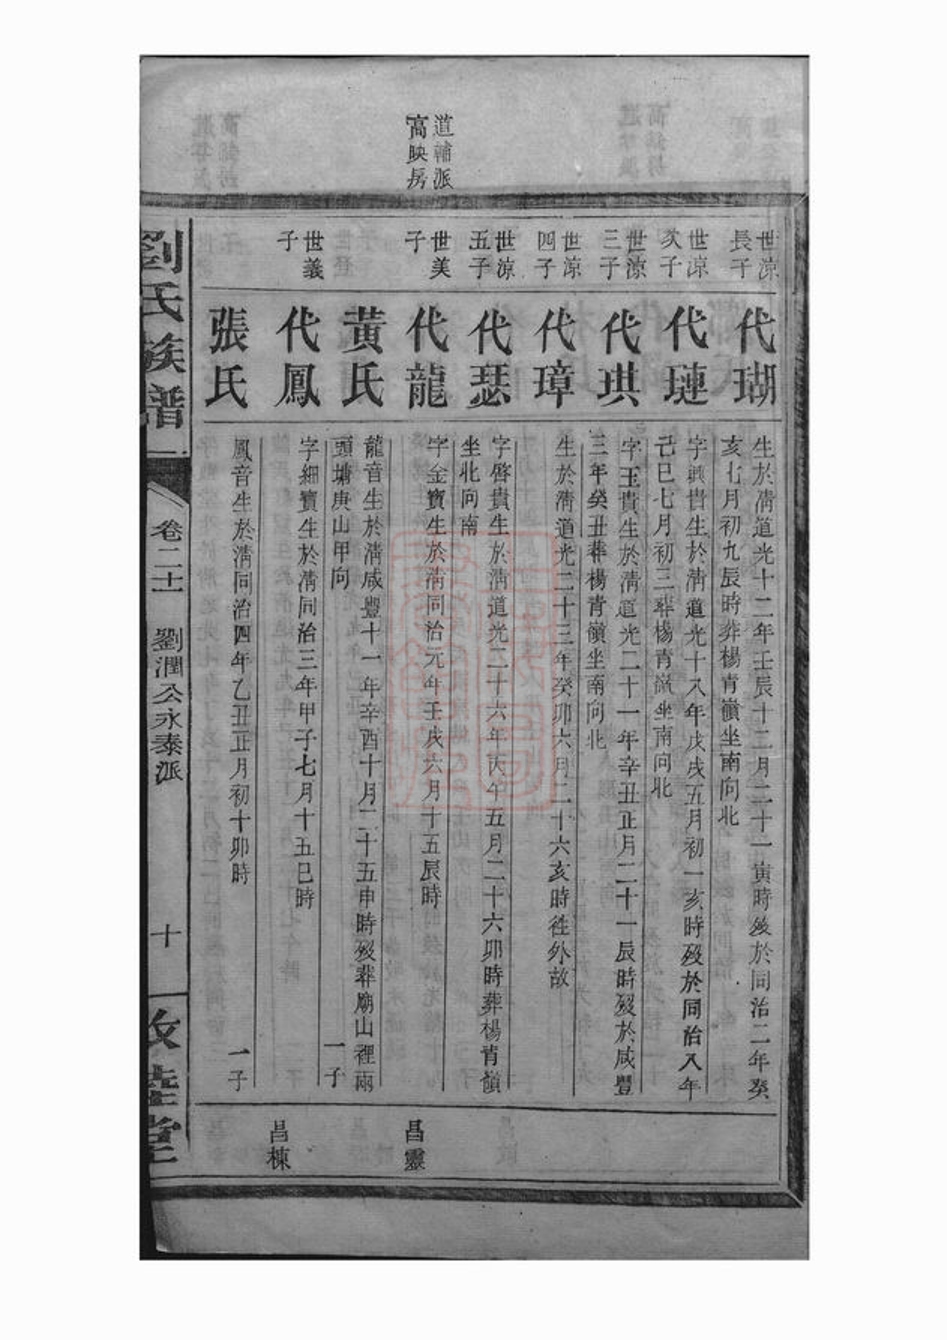 道輔派
高映房
世涼
長子
代瑚
生於清道光十二年壬辰十二月二十一寅時歿於同治二年癸
亥七月初九辰時葬楊青嶺坐南向北
世涼
次子
代璉
字興貴生於清道光十八年戊戌五月初一亥時歿於同治八年
己巳七月初三葬楊青嶺坐南向北
世涼
三子
代珙
字玉貴生於清道光二十一年辛丑正月二十一辰時歿於咸豐
三年癸丑葬楊青嶺坐南向北
世涼
四子
代璋
生於清道光二十三年癸卯六月二十六亥時徃外故
世涼
五子
代瑟
字啓貴生於清道光二十六年丙午五月二十六卯時葬楊青嶺
坐北向南
世美
子
代龍
字金寶生於清同治元年壬戌六月十五辰時
黃氏
龍音生於清咸豐十一年辛酉十月二十五申時歿葬廟山裡兩
頭塘庚山甲向
一子
昌靈
世義
子
代鳳
字細寶生於清同治三年甲子七月十五巳時
張氏
鳳音生於清同治四年乙丑正月初十卯時
一子
昌棟
劉氏族譜
卷二十一
劉潤公永泰派
十
堂